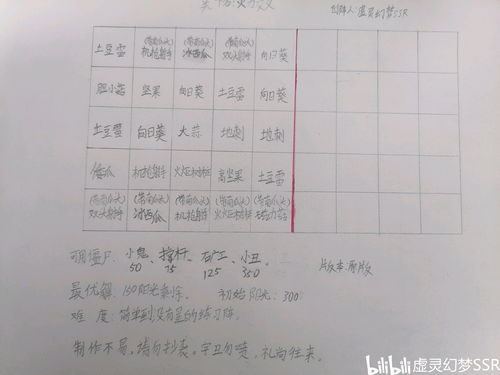 创作人:虚灵幻梦SSR
土豆雷 (带南瓜头)机枪射手 (带南瓜头)冰西瓜 (带南瓜头)双头射手 向日葵
胆小菇 坚果 向日葵 土豆雷 向日葵
土豆雷 向日葵 大蒜 地刺 地刺
倭瓜 机枪射手 火炬树桩 高坚果 土豆雷
(带南瓜头)双头射手 (带南瓜头)冰西瓜 (带南瓜头)机枪射手 (带南瓜头)火炬树桩 (带南瓜头)
可用僵尸:小鬼、撑杆、矿工、小丑
50 75 125 350
版本:原版
最优解:150阳光剩余. 初始阳光:300
难度:简单到没有星的练习阵
制作不易,请勿抄袭。字丑勿喷,礼尚往来。
bilibili 虚灵幻梦SSR